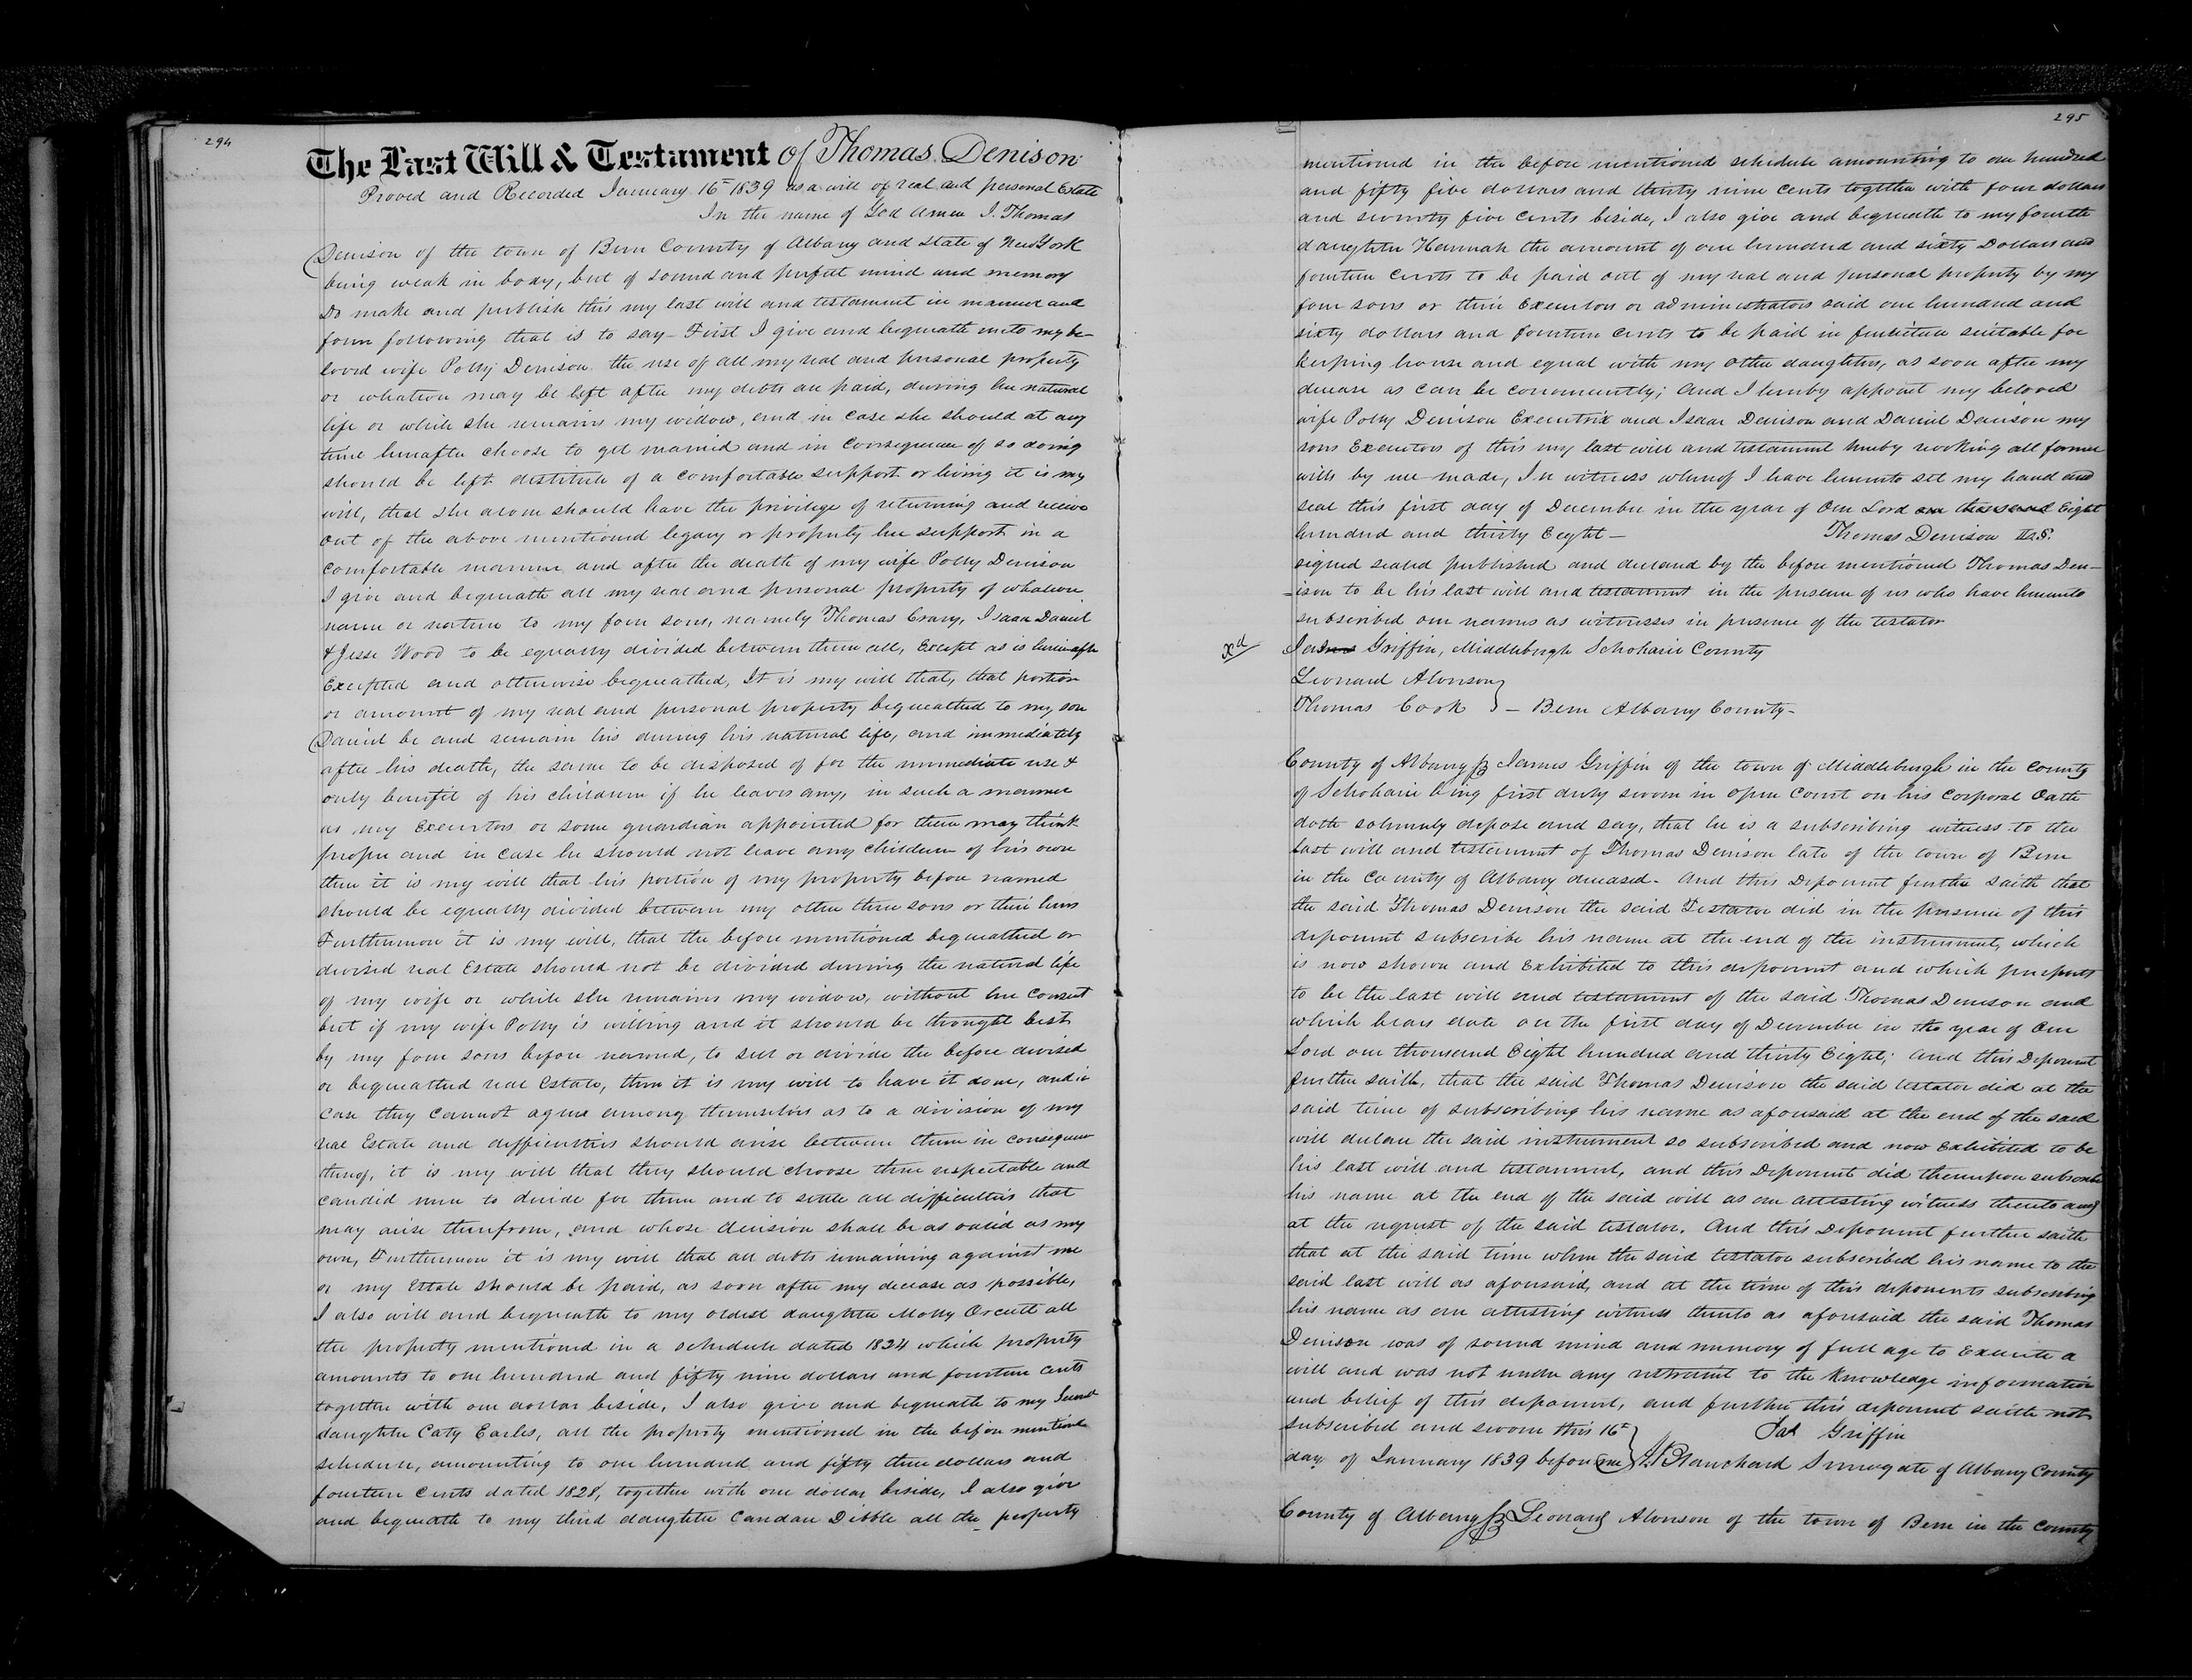 294
The Last Will & Testament of Thomas Denison
Proved and Recorded January 16th 1839 as a will of real and personal Estate
In the name of God Amen I. Thomas
Denison of the town of Bern County of Albany and State of New York
being weak in body, but of sound and perfect mind and memory
Do make and publish this my last will and testament in manner and
form following that is to say - First I give and bequeath unto my be-
loved wife Polly Denison the use of all my real and personal property
or whatever may be left after my debts are paid, during her natural
life or while she remains my widow, and in case she should at any
time hereafter choose to get married and in consequence of so doing
should be left destitute of a comfortable support or living it is my
will, that she alone should have the privilege of returning and receive
out of the above mentioned legacy or property her support in a
comfortable manner and after the death of my wife Polly Denison
I give and bequeath all my real and personal property of whatever
name or nature to my four sons, namely Thomas Crary, Isaac Daniel
& Jesse Wood to be equally divided between them all, Except as is herein after
Excepted and otherwise bequeathed, It is my will that, that portion
or amount of my real and personal property bequeathed to my son
Daniel be and remain his during his natural life, and immediately
after his death, the same to be disposed of for the immediate use &
only benefit of his children if he leaves any, in such a manner
as my Executors or some guardian appointed for them may think
proper and in case he should not leave any children of his own
then it is my will that his portion of my property before named
should be equally divided between my other three sons or their heirs
Furthermore it is my will, that the before mentioned bequeathed or
devised real Estate should not be divided during the natural life
of my wife or while she remains my widow, without her consent
but if my wife Polly is willing and it should be thought best
by my four sons before named, to sell or divide the before devised
or bequeathed real Estate, then it is my will to have it done, and in
case they cannot agree among themselves as to a division of my
real Estate and difficulties should arise between them in consequence
thereof, it is my will that they should choose three respectable and
candid men to decide for them and to settle all difficulties that
may arise therefrom, and whose decision shall be as valid as my
own, Furthermore it is my will that all debts remaining against me
or my Estate should be paid, as soon after my decease as possible,
I also will and bequeath to my oldest daughter Molly Orcutt all
the property mentioned in a schedule dated 1824 which property
amounts to one hundred and fifty nine dollars and fourteen cents
together with one dollar beside, I also give and bequeath to my second
daughter Caty Earles, all the property mentioned in the before mentioned
schedule, amounting to one hundred and fifty three dollars and
fourteen cents dated 1828, together with one dollar beside, I also give
and bequeath to my third daughter Candace Dibble all the property
295
mentioned in the before mentioned schedule amounting to one hundred
and fifty five dollars and thirty nine cents together with four dollars
and seventy five cents beside, I also give and bequeath to my fourth
daughter Hannah the amount of one hundred and sixty Dollars and
fourteen cents to be paid out of my real and personal property by my
four sons or their Executors or administrators said one hundred and
sixty dollars and fourteen cents to be paid in furniture suitable for
keeping house and equal with my other daughters, as soon after my
decease as can be conveniently; and I hereby appoint my beloved
wife Polly Denison Executrix and Isaac Denison and Daniel Denison my
sons Executors of this my last will and testament hereby revoking all former
wills by me made, In witness whereof I have hereunto set my hand and
seal this first day of December in the year of Our Lord one thousand Eight
hundred and thirty Eight - Thomas Denison L.S.
signed sealed published and declared by the before mentioned Thomas Den-
-ison to be his last will and testament in the presence of us who have hereunto
subscribed our names as witnesses in presence of the testator
xd James Griffin, Middleburgh Schoharie County
Leonard Alonson
Thomas Cook } - Bern Albany County -
County of Albany ss James Griffin of the town of Middleburgh in the County
of Schoharie being first duly sworn in open Court on his corporal Oath
doth solemnly depose and say, that he is a subscribing witness to the
last will and testament of Thomas Denison late of the town of Bern
in the County of Albany deceased - And this Deponent further saith that
the said Thomas Denison the said Testator did in the presence of this
deponent subscribe his name at the end of the instrument, which
is now shown and Exhibited to this deponent and which purports
to be the last will and testament of the said Thomas Denison and
which bears date on the first day of December in the year of Our
Lord one thousand Eight hundred and thirty Eight; And this Deponent
further saith, that the said Thomas Denison the said testator did at the
said time of subscribing his name as aforesaid at the end of the said
will declare the said instrument so subscribed and now Exhibited to be
his last will and testament, and this Deponent did thereupon subscribe
his name at the end of the said will as an attesting witness thereto and
at the request of the said testator. And this Deponent further saith
that at the said time when the said testator subscribed his name to the
said last will as aforesaid, and at the time of this deponents subscribing
his name as an attesting witness thereto as aforesaid the said Thomas
Denison was of sound mind and memory of full age to Execute a
will and was not under any restraint to the knowledge information
and belief of this deponent, and further this deponent saith not
subscribed and sworn this 16th } Jas Griffin
day of January 1839 before me } A Blanchard Surrogate of Albany County
County of Albany ss Leonard Alonson of the town of Bern in the County